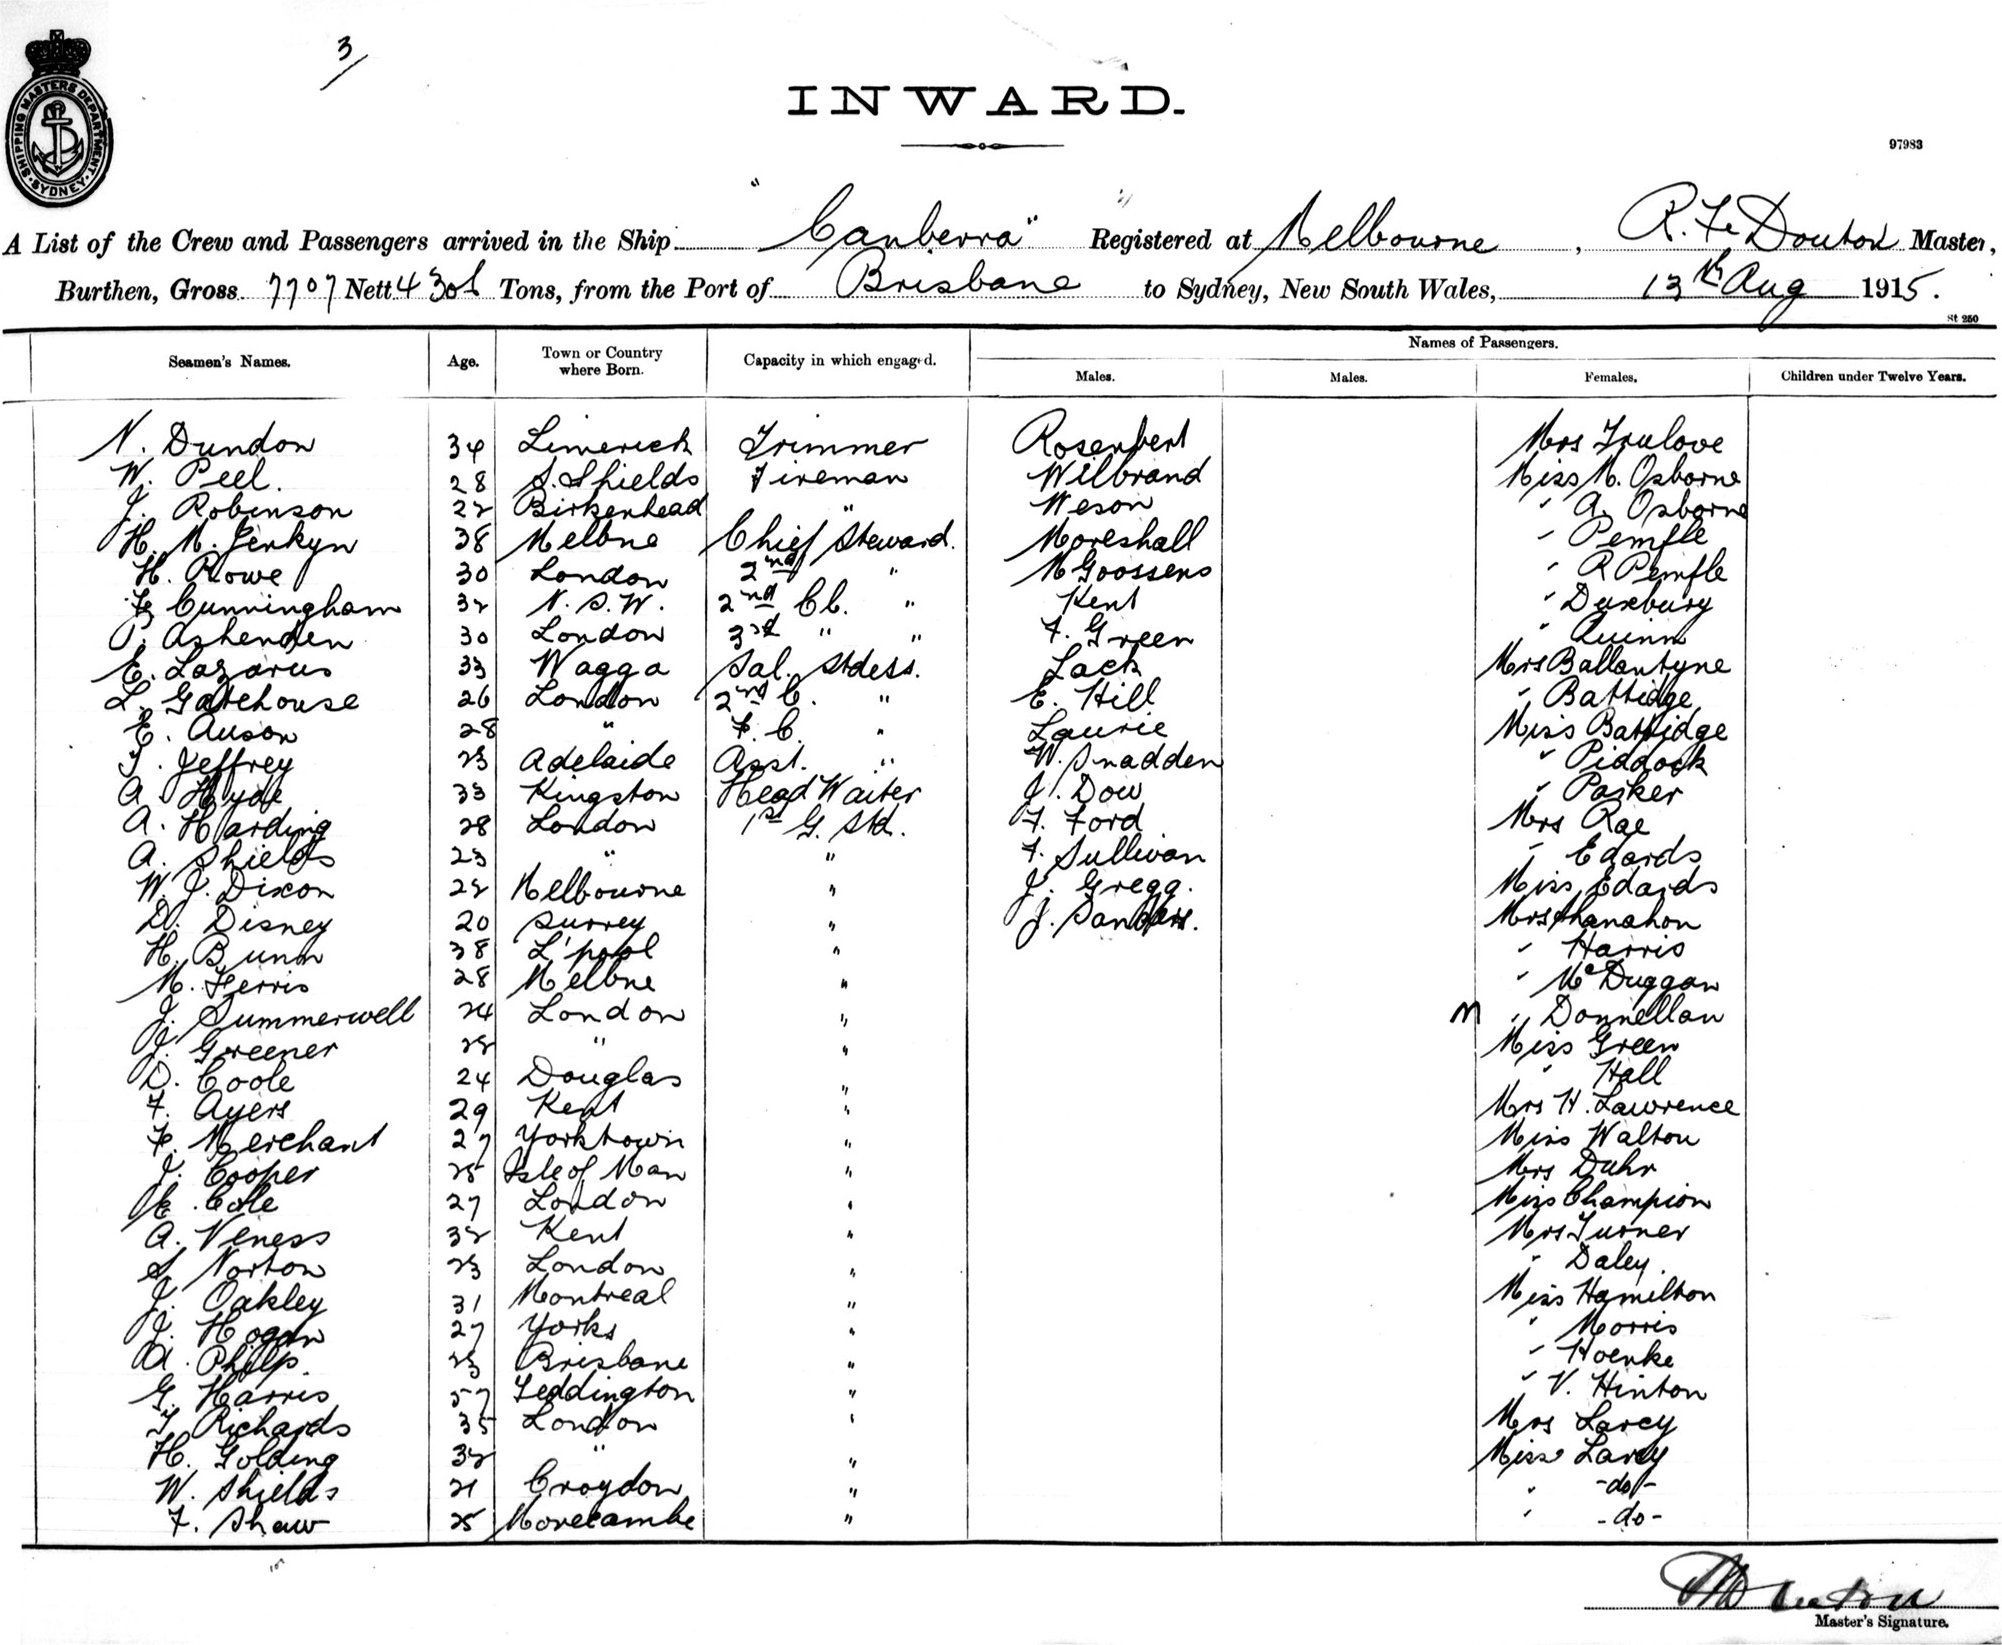 3/
SHIPPING MASTERS DEPARTMENT
SYDNEY
INWARD.
97983
A List of the Crew and Passengers arrived in the Ship "Canberra" Registered at Melbourne, R. F. Douton Master,
Burthen, Gross 7707 Nett Tons, from the Port of Brisbane to Sydney, New South Wales, 13th Aug 1915.
St 250
Names of Passengers.
Seamen's Names. Age. Town or Country where Born. Capacity in which engaged. Males. Males. Females. Children under Twelve Years.
N. Dundon 34 Limerick Trimmer Rosenbert Mrs Trulove
W. Peel. 28 S. Shields Fireman Wilbrand Miss M. Osborne
J. Robinson 22 Birkenhead " Weson " A. Osborne
H. M. Jenkyn 38 Melbne Chief Steward. Moreshall " Pemfle
H. Rowe 30 London 2nd " M Goossens " R Pemfle
F. Cunningham 32 N.S.W. 2nd Cl. " Kent " Duxbury
P. Ashenden 30 London 3rd " " F. Green " Quinn
E. Lazarus 33 Wagga Sal. Stdess. Lack Mrs Ballantyne
L. Gatehouse 26 London 2nd C. " E. Hill " Battidge
E. Auson 28 " F. C. " Laurie Miss Battidge
T. Jeffrey 23 Adelaide Asst. " W. Snadden " Piddock
A. Hyde 33 Kingston Head Waiter J. Dow " Parker
A. Harding 28 London 1st G. Std. F. Ford Mrs Rae
A. Shields 23 " " F. Sullivan " Edards
W. J. Dixon 22 Melbourne " J. Gregg. Miss Edards
D. Disney 20 Surrey " J. Sanders. Mrs Shanahon
H. Bunn 38 L'pool " " Harris
M. Ferris 28 Melbne " " McDuggan
J. Summerwell 24 London " " Donnellan
J. Greener 22 " " Miss Green
D. Coole 24 Douglas " " Hall
F. Ayers 29 Kent " Mrs H. Lawrence
F. Merchant 27 Yorktown " Miss Walton
J. Cooper 25 Isle of Man " Mrs Duhr
E. Cole 27 London " Miss Champion
A. Veness 32 Kent " Mrs Turner
S. Norton 23 London " " Daley.
J. Oakley 31 Montreal " Miss Hamilton
J. Hogan 27 Yorks " " Morris
A. Philp. 23 Brisbane " " Hoenke
G. Harris 57 Teddington " " V. Hinton
T. Richards 35 London " Mrs Larcy
H. Golding 32 " " Miss Larcy
W. Shields 21 Croydon " " -do-
F. Shaw 25 Morecambe " " -do-
Master's Signature.